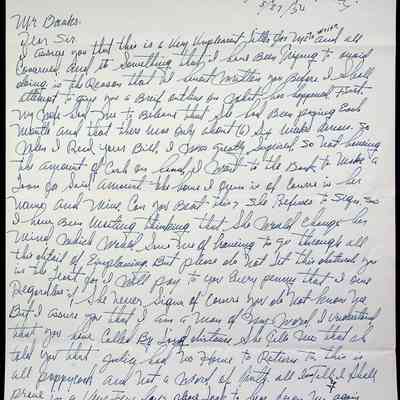 5/27/56
Mr Danks.
Dear Sir.
I assure you that this is a Very Unpleasant letter for me to and all
Concerned and it Something that I have Been trying to avoid
doing is the Reason that I havent Written you Before I Shall
attempt to give you a Brief outline on what has happened First
My Wife has Due to Believe that She had Been paying Each
Month and that there Was Only about (6) Six Weeks arrears. So
When I Recd your Bill I Was greatly Surprised. So not having
the amount of Cash on hand, I Went to the Bank, to Make a
Loan for Said amount the home I own is of Course in her
Name and Mine. Can you Beat this? She Refuses to Sign, So
I have Been Waiting thinking that She Would Change her
Mind Which Would Save me of having to go through all
the detail of Explaining. But please do not let this disturb you
in the least for I Will pay to you Every penny that I owe
Regardless if She never Signs of Course you do not know me
But I assure you that I am a Man of my Word. I understand
that you have Called By Long distance, She tells me that
told you that Julia had no Desire to Return to this is
all poppycock and not a Word of truth, I Shall